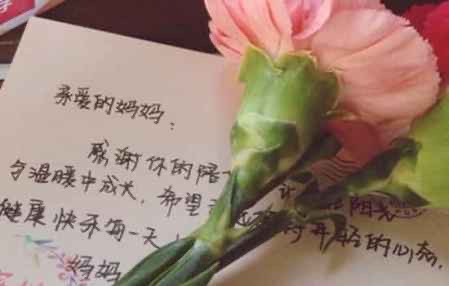 亲爱的妈妈：
感谢你的陪
温暖中成长，希望 阳光
健康快乐每一天 年轻的心态，
妈妈